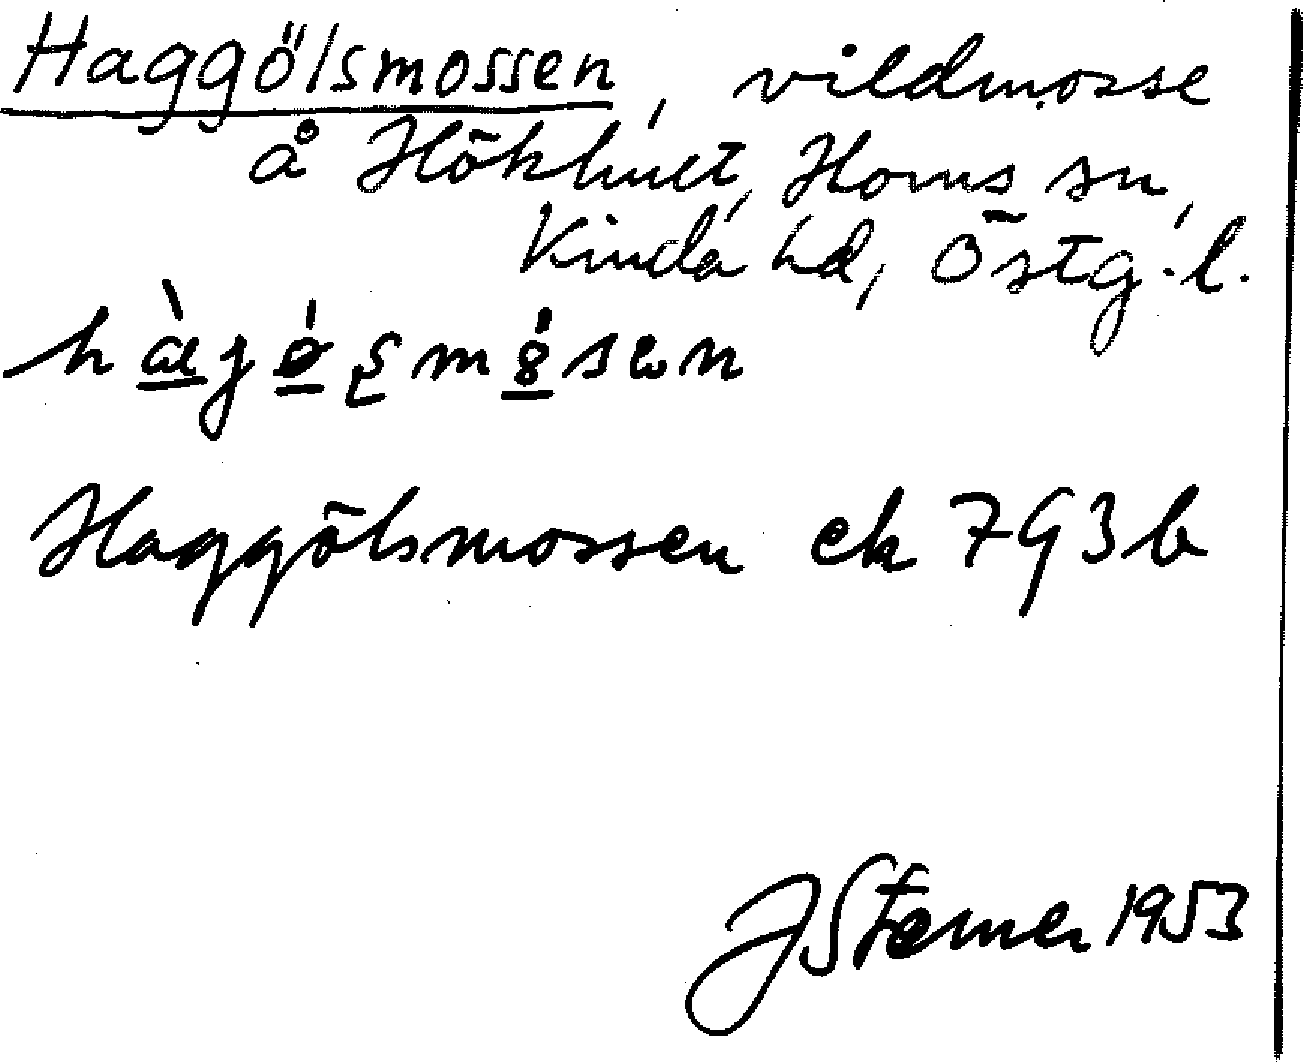 Haggölsmossen, vildmosse
å Hökhult, Horns sn,
Kinda hd, Östg.l.
Haggölsmossen ek 793b
JSterner 1953